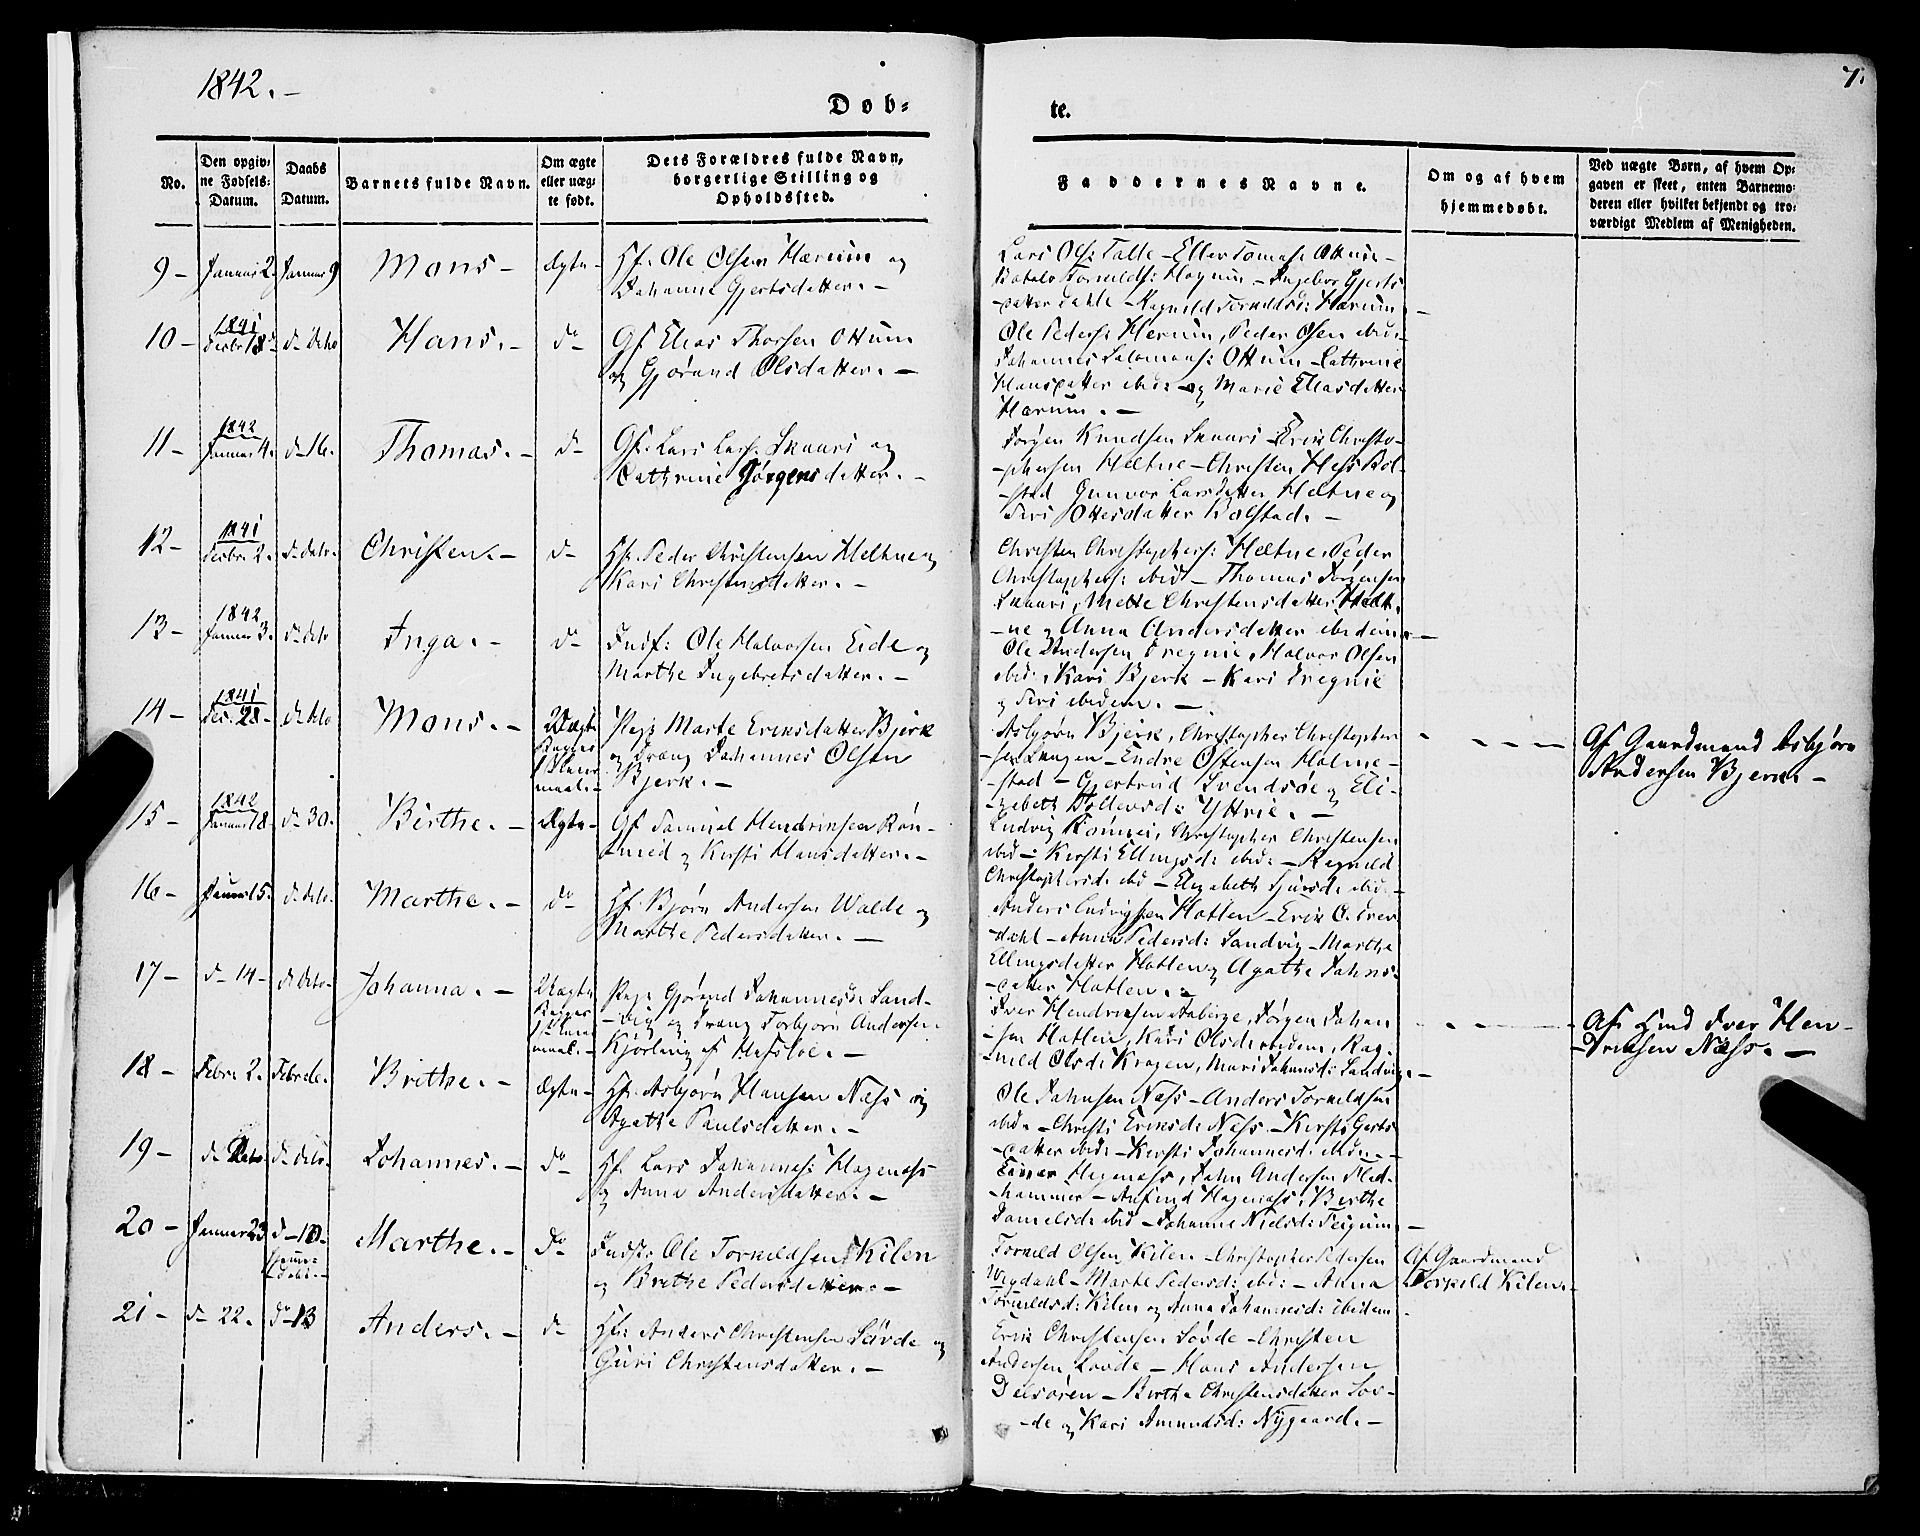 1842. -
7.
Døb-
te.
No.
Den opgiv-
ne Fødsels-
Datum.
Daabs
Datum.
Barnets fulde Navn.
Om ægte
eller uæg-
te født.
Dets Forældres fulde Navn,
borgerlige Stilling og
Opholdssted.
Faddernes Navne.
Om og af hvem
hjemmedøbt.
Ved uægte Børn, af hvem Op-
gaven er skeet, enten Barnemo-
deren eller hvilket bekjendt og tro-
værdigt Medlem af Menigheden.
9 - Januar 2. Januar 9 Mons - Ægte - Ole Olsen Hærum og
Johanne Gjertsdatter. -
Lars Ols: Talle - Eller Tomas: Ottum -
Hærum.
10 - 1841 Decbr 18 do dito Hans. - do Gf Elias Thorsen Ottum
og Gjørand Olsdatter. -
Ole Peders: Hærum, Peder Osen ibid:
Johannes Salomons: Ottum - Cathrine
Hansdatter ibid: - og Marie Eliasdatter
Hærum. -
11 - 1842 Januar 4. do 16. Thomas. - do Gf. Lars Lars: Skaari og
Cathrine Jørgensdatter. -
Jørgen Knudsen Skaari - Erik Christo-
-phersen Hæltne - Christen Hess Bol-
-stad Gunvor Larsdatter Hæltne og
Siri Ottesdatter Bolstad. -
12 - 1841 Decbr 2. do dito. Christen. - do Peder Christensen Heltne og
Kari Christensdatter. -
Christen Christophers: Hæltne, Peder
Christophers: ibid - Thomas Jørgensen
Skaari, Mette Christensdatter Hælt-
-ne og Anna Andersdatter ibidem -
13 - 1842 Januar 3. do dito Inga. - do Indf: Ole Halvorsen Eide og
Marthe Ingebretsdatter. -
Ole Andersen Dregnie, Halvor Olsen
ibid:, Kari Bjerk - Kari Dregnie
og Siri ibidem. -
14 - 1841 Dec. 28 - do dito Mons. - Uægte
Begges
1ste Leier
maal. -
Pige Marte Eriksdatter Bjerk
og Dreng Johannes Olsen
Bjerk. -
Asbjørn Bjerk, Christopher Christopher
-sen Langen - Endre Østensen Holme-
-stad - Gjertrud Svendsøe og Eli-
-zabeth Tollevsd: Yttrie. -
Af Gaardmand Asbjørn
Andersen Bjerk. -
15 - 1842 Januar 8. do 30. Birthe. - Ægte - Gf Samuel Hendriksen Røn-
-neid og Kirsti Hansdatter. -
Ludvig Rønnei, Christopher Christensen
ibid - Kirsti Ellingsd: ibid: - Ragnild
Christophersd. ibid - Elizabeth Sjursd. ibid. -
16 - Januar 15. do dito. Marthe. - do Bjørn Andersen Walde og
Marthe Pedersdatter. -
Anders Ludvigsen Hatlen - Erik O. Drev
dahl - Anna Pedersd: Sandvig - Marthe
Ellingsdatter Hatlen og Agathe Johns-
-datter Hatlen. -
17 - do 14 - do dito - Johanna. - Uægte
Begges
1ste Leier
maal. -
Pige Gjørand Johannesd: Sand-
-vig og Dreng Torbjørn Andersen
Kjørling af Hafsloe. -
Iver Hendriksen Aaberge, Jørgen Johan
-sen Hatlen, Kari Olsd: ibidem, Rag-
-nild Olsd: Kragen, Mari Johansd: Sandvig. -
Af Iver Hen-
-driksen Næss. -
18 - Febr. 2. Febr. 6. Brithe. - Ægte - Asbjørn Hansen Næss og
Agathe Paulsdatter. -
Ole Johnsen Næss - Anders Torkildsen
ibid. - Christi Eriksd: Næss - Kirsti Gjerts
-datter ibid: - Kirsti Johannesd:
19 - do do dito. Johannes. - do Lars Johannes: Hagenæss
og Anna Andersdatter. -
Einar Hagenæss, John Andersen Flad-
-hammer - Hagenæss: Birthe
Danielsd: ibid - Johanne Nielsd: Teigum -
20 - Januar 23 do - 10 - Marthe. - do Indst: Ole Torkildsen Kilen
og Brithe Pedersdatter. -
Torkild Olsen Kilen - Christopher Pedersen
Wigdahl - Marte Pedersd: ibid: - Anna
Torkildsd: Kilen og Anna Johannesd: ibidem
Af Gaardmand
Torkild Kilen. -
21 - do 22. do 13 Anders. - do Anders Christensen Søvde og
Guri Christensdatter. -
Erik Christensen Søvde - Christen
Andersen Søvde - Hans Andersen
Dalsøren - Birthe Christensdatter Søv-
-de og Kari Amundsd: Nygaard. -